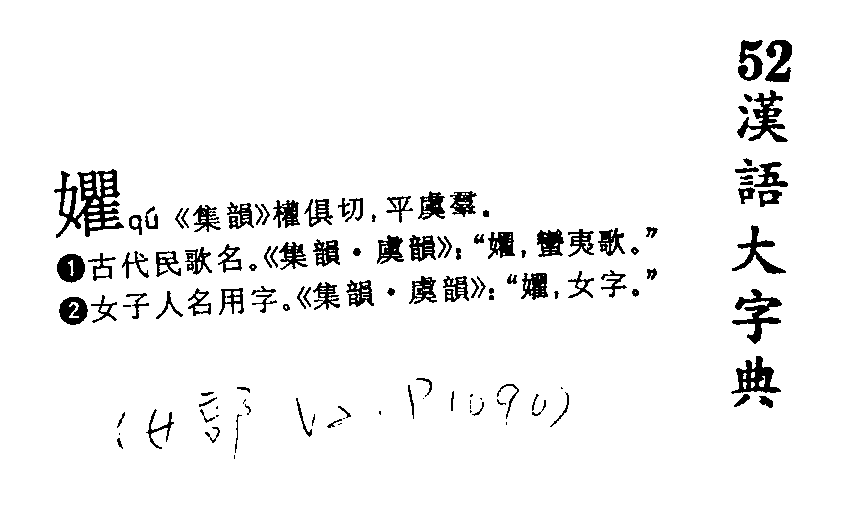 52漢語大字典
㜹qú《集韻》權俱切,平虞羣。
❶古代民歌名。《集韻·虞韻》:“㜹,蠻夷歌。”
❷女子人名用字。《集韻·虞韻》:“㜹,女字。”
(女部 V2. P1090)